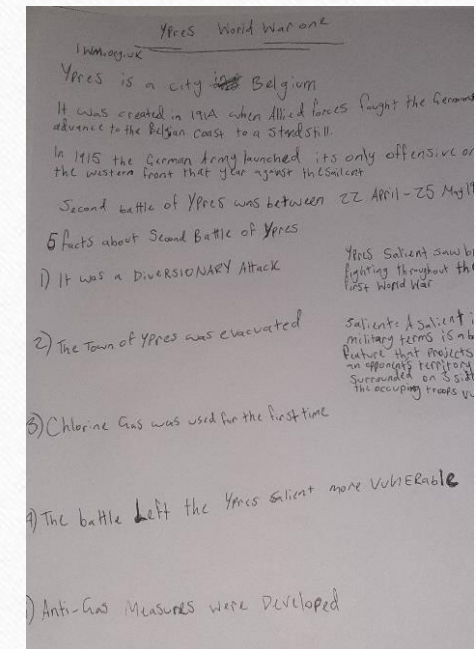 Ypres World War one
iwm.org.uk
Ypres is a city in Belgium
It was created in 1914 when Allied forces fought the German
advance to the Belgian coast to a standstill.
In 1915 the German Army launched its only offensive on
the western front that year against the salient
Second battle of Ypres was between 22 April - 25 May
5 facts about Second Battle of Ypres
1) It was a DIVERSIONARY Attack
2) The Town of Ypres was evacuated
3) Chlorine Gas was used for the first time
4) The battle Left the Ypres Salient more VulnERable
) Anti-Gas Measures were Developed
Ypres Salient saw
fighting throughout the
first World War
Salient: A Salient
military terms is a
feature that projects
an opponents territory
Surrounded on 3
the occuping troops